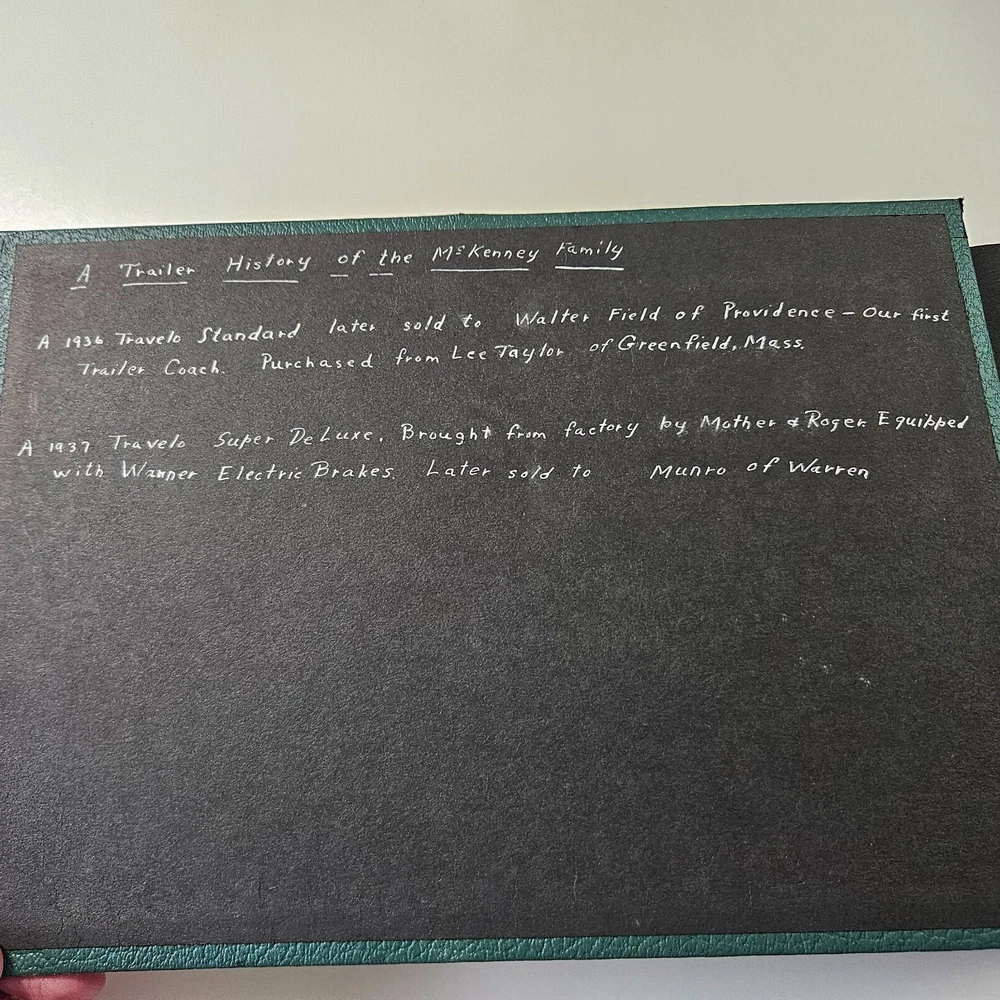 A Trailer History of the McKenney Family
A 1936 Travelo Standard later sold to Walter Field of Providence – Our first
Trailer Coach. Purchased from Lee Taylor of Greenfield, Mass.
A 1937 Travelo Super DeLuxe. Brought from factory by Mother & Roger. Equipped
with Warner Electric Brakes. Later sold to Munro of Warren